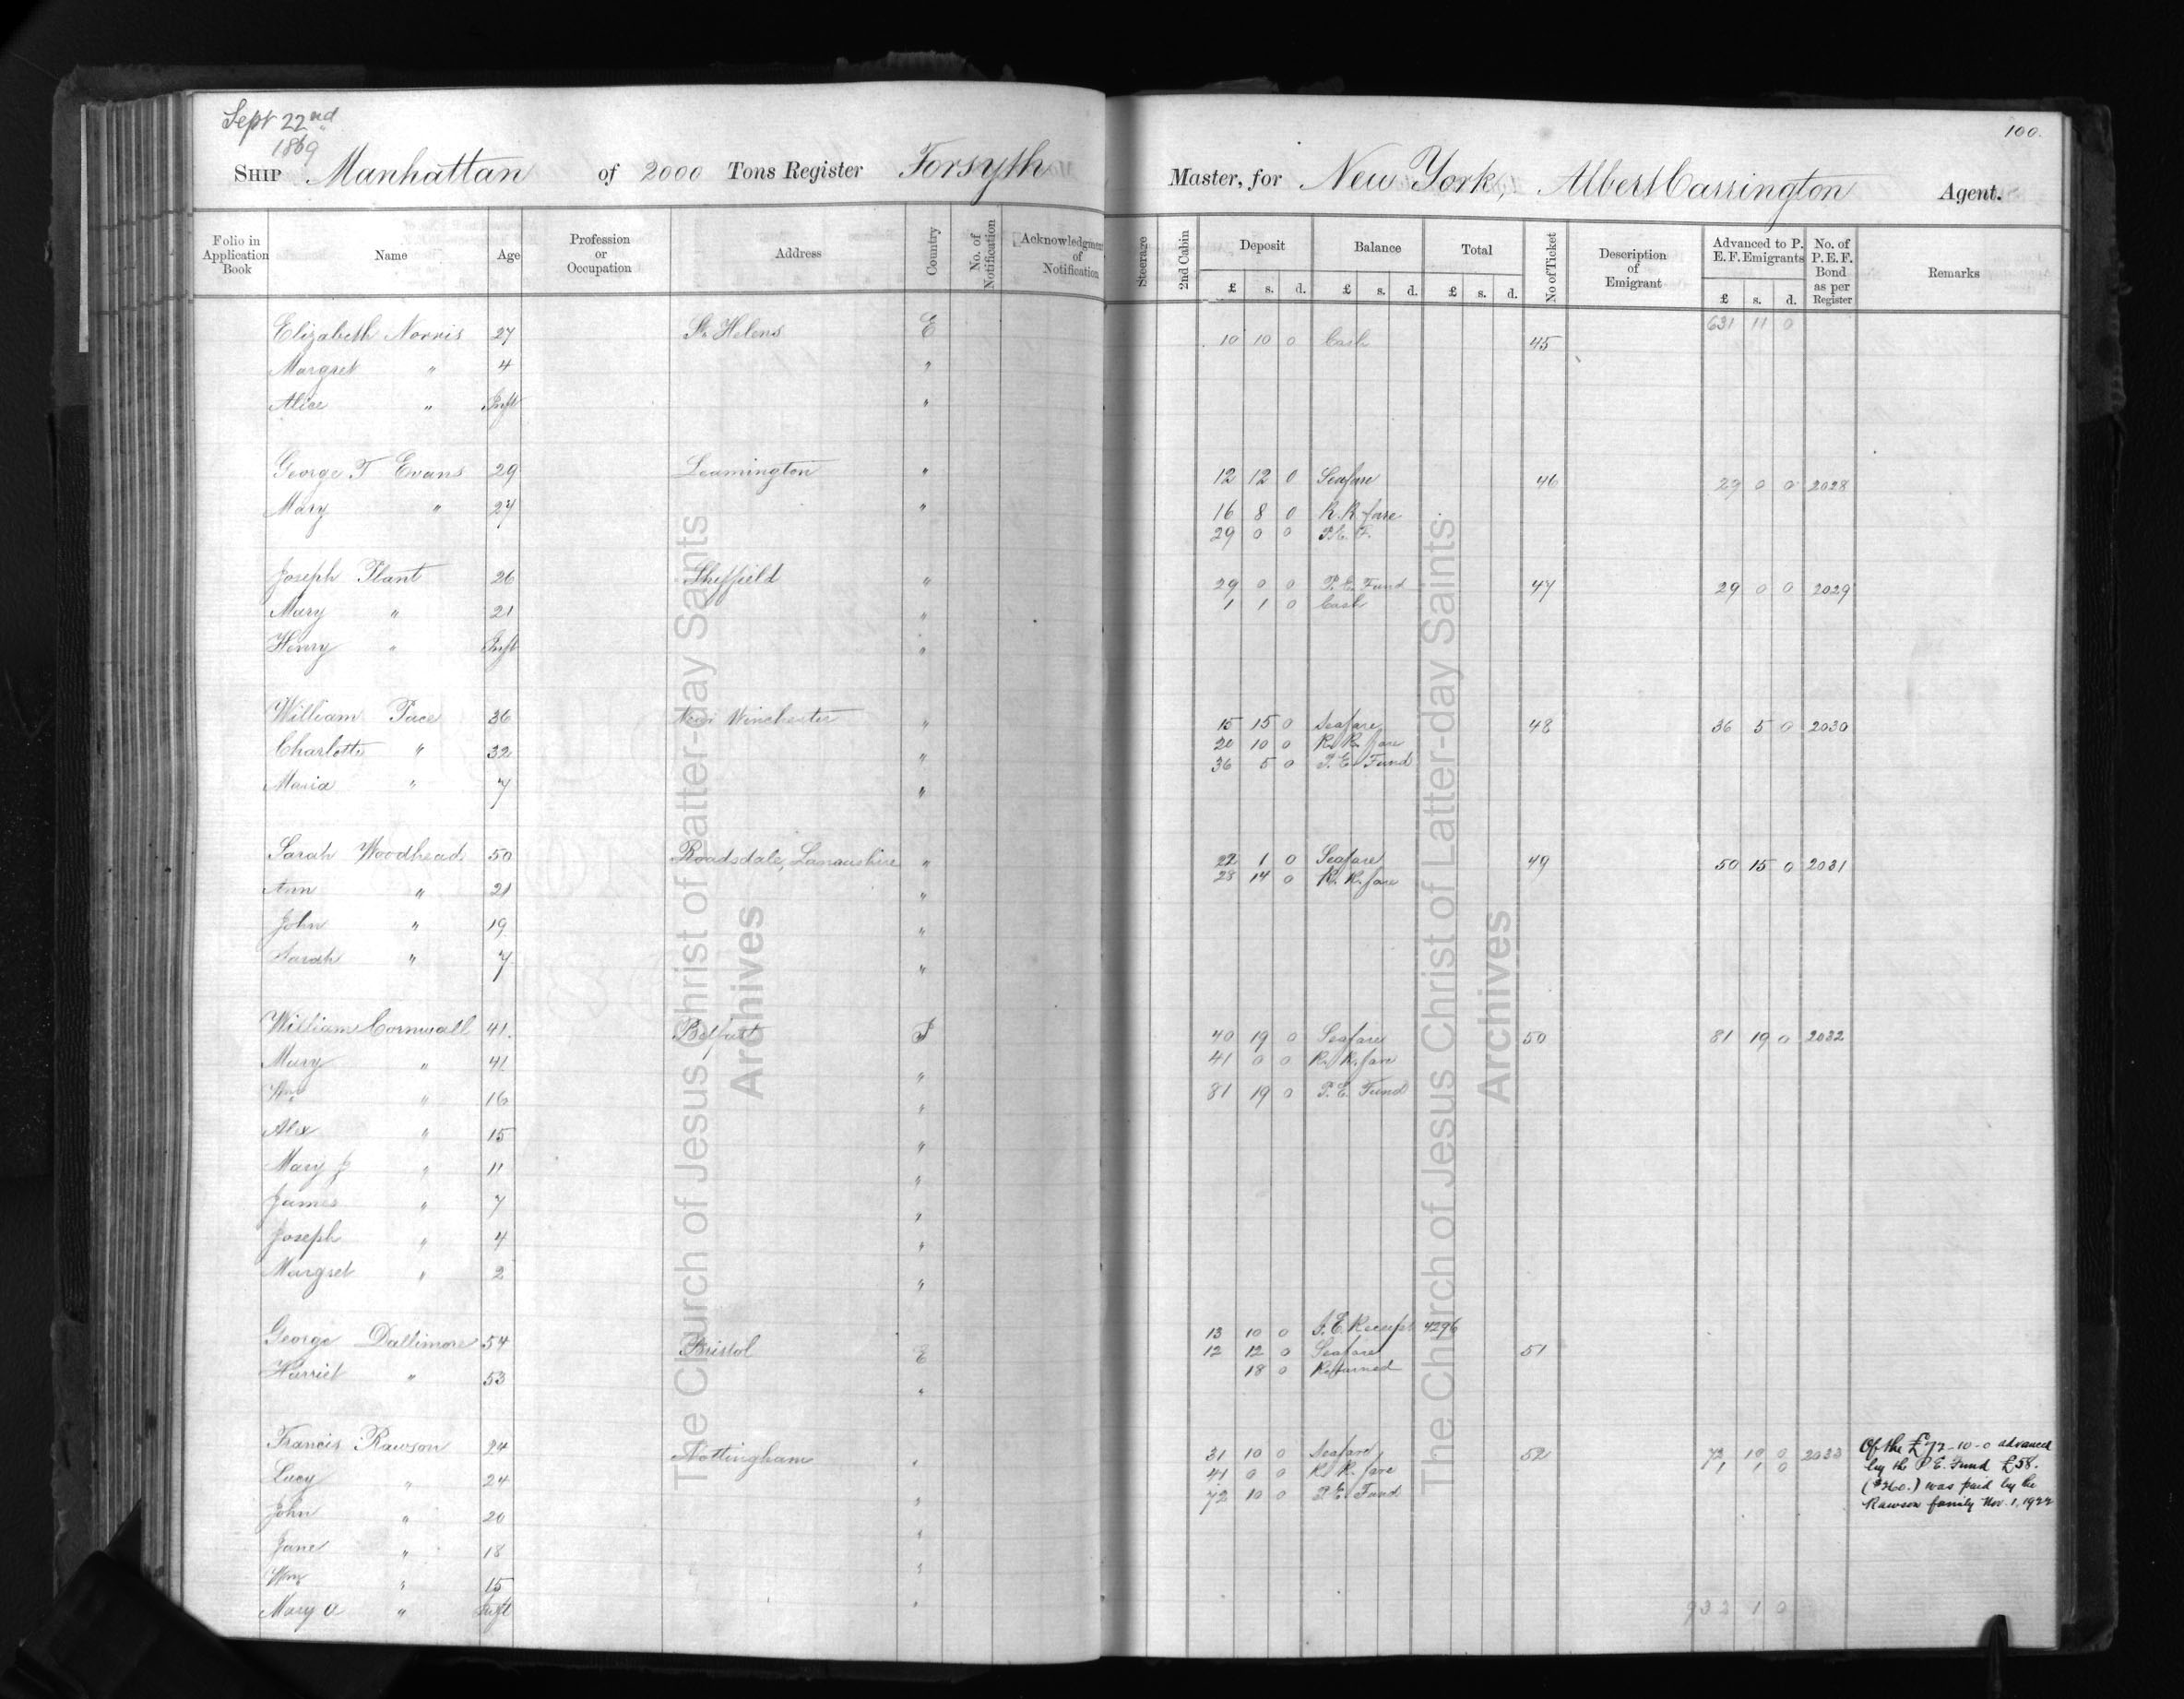 Sept 22nd
1869
100.
SHIP Manhattan of 2000 Tons Register Forsyth Master, for New York, Albert Carrington Agent.
Folio in Application Book Name Age Profession or Occupation Address Country No. of Notification Acknowledgment of Notification Steerage 2nd Cabin Deposit Balance Total No of Ticket Description of Emigrant Advanced to P. E. F. Emigrants No. of P. E. F. Bond as per Register Remarks
£ s. d. £ s. d. £ s. d. £ s. d.
631 11 0
Elizabeth Norris 27 St. Helens E 10 10 0 Cash 45
Margret " 4 "
Alice " Inft "
George T Evans 29 Leamington " 12 12 0 Seafare 46 29 0 0 2028
Mary " 27 " 16 8 0 R. R fare
29 0 0 P.E. F.
Joseph Plant 26 Sheffield " 29 0 0 P. E. Fund 47 29 0 0 2029
Mary " 21 " 1 1 0 Cash
Henry " Inft "
William Pace 36 Winchester " 15 15 0 Seafare 48 36 5 0 2030
Charlotte " 32 " 20 10 0 R. R. fare
36 5 0 P. E. Fund
Maria " 7 "
Sarah Woodhead 50 Roadsdale, " 22 1 0 Seafare 49 50 15 0 2031
Ann " 21 " 28 14 0 R. R. fare
John " 19 "
Sarah " 7 "
William Cornwall 41. Belfast I 40 19 0 Seafare 50 81 19 0 2032
Mary " 41 " 41 0 0 R. R. fare
Wm " 16 " 81 19 0 P. E. Fund
Alex " 15 "
Mary J " 11 "
James " 7 "
Joseph " 4 "
Margret " 2 "
13 10 0 Receipt 4296
George Dallimore 54 Bristol E 12 12 0 Seafare 51
Harriet " 53 " 18 0 Returned
Francis Rawson Nottingham " 31 10 0 Seafare 52 72 10 0 2033 Of the £72-10-0 advanced
Lucy " 24 " 41 0 0 R. R. fare 1 1 0 by the P. E. Fund £58.
72 10 0 P. E. Fund ($360.) was paid by the
John " 20 " Rawson family Nov. 1, 1922
Jane " 18 "
Wm " 15 "
Mary A " Inft " 932 1 0
The Church of Jesus Christ of Latter-day Saints
Archives
The Church of Jesus Christ of Latter-day Saints
Archives